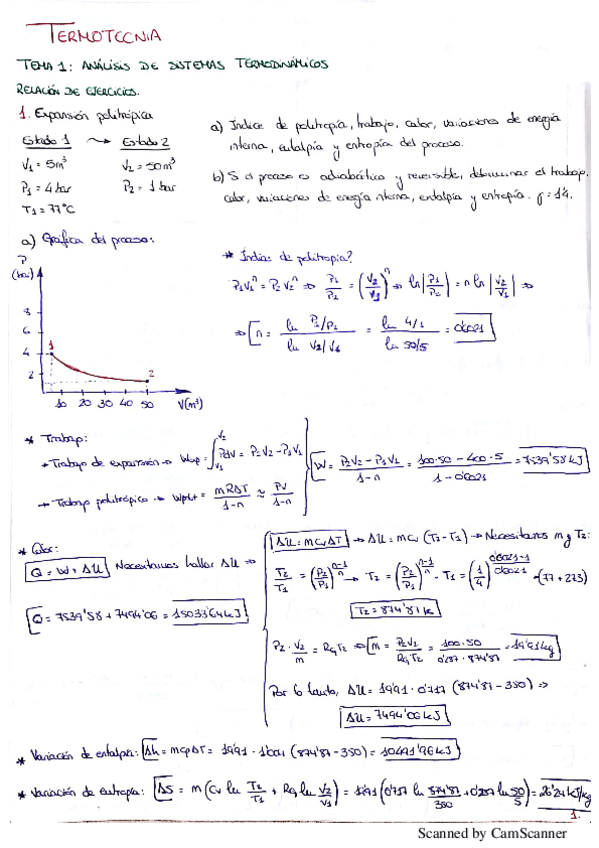 TERMOTECNIA
TEMA 1: ANÁLISIS DE SISTEMAS TERMODINÁMICOS
RELACIÓN DE EJERCICIOS.
1. Expansión politrópica
Estado 1 → Estado 2
V₁ = 5m³ V₂ = 50m³
P₁ = 4 bar P₂ = 1 bar
T₁ = 77°C
a) Índice de politropía, trabajo, calor, variaciones de energía
interna, entalpía y entropía del proceso.
b) Si el proceso es adiabático y reversible, determinar el trabajo,
calor, variaciones de energía interna, entalpía y entropía. γ = 1'4.
a) Gráfica del proceso:
P
(bar)
8
6
4
2
1
2
10 20 30 40 50 V(m³)
* Índice de politropia?
P₁V₁ⁿ = P₂V₂ⁿ ⇒ P₁/P₂ = (V₂/V₁)ⁿ ⇒ ln|P₁/P₂| = n ln|V₂/V₁| ⇒
⇒ n = ln P₁/P₂ / ln V₂/V₁ = ln 4/1 / ln 50/5 = 0'6021
* Trabajo:
→ Trabajo de expansión → Wexp = ∫ PdV = P₂V₂ - P₁V₁
→ Trabajo politrópico → Wpol = mRΔT / 1-n ≈ PV / 1-n
W = P₂V₂ - P₁V₁ / 1-n = 100·50 - 400·5 / 1-0'6021 = 7539'58 kJ
* Calor:
Q = W + ΔU Necesitamos hallar ΔU ⇒
Q = 7539'58 + 7494'06 = 15033'64 kJ
ΔU = mCvΔT → ΔU = mCv (T₂-T₁) → Necesitamos m y T₂:
T₂/T₁ = (P₂/P₁)^(n-1/n) → T₂ = (P₂/P₁)^(n-1/n) · T₁ = (1/4)^(0'6021-1/0'6021) · (77 + 273)
T₂ = 874'87 K
P₂ · V₂/m = Rg T₂ ⇒ m = P₂V₂ / RgT₂ = 100·50 / 0'287·874'87 = 19'91 kg
Por lo tanto, ΔU = 19'91 · 0'717 (874'87 - 350) ⇒
ΔU = 7494'06 kJ
* Variación de entalpía: Δh = mCpΔT = 19'91 · 1'004 (874'87 - 350) = 10491'96 kJ
* Variación de entropía: ΔS = m (Cv ln T₂/T₁ + Rg ln V₂/V₁) = 19'91 (0'717 ln 874'87/350 + 0'287 ln 50/5) = 26'24 kJ/kg
1.
Scanned by CamScanner